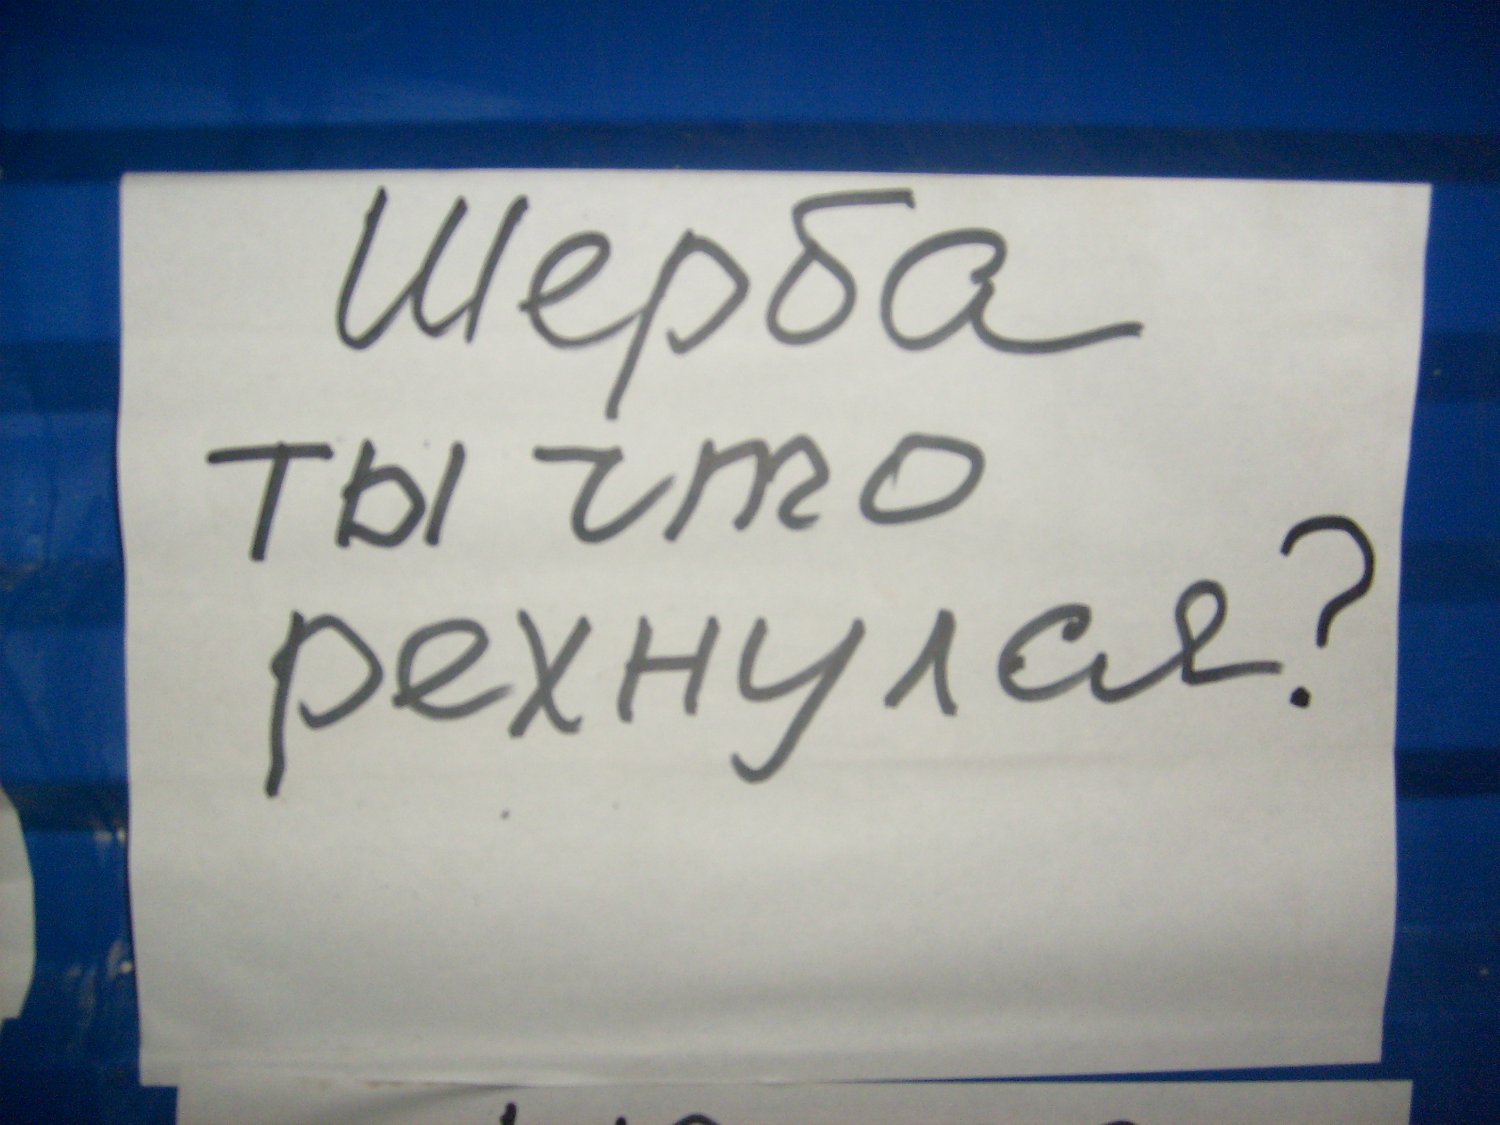 Шерба
ты что
рехнулся?